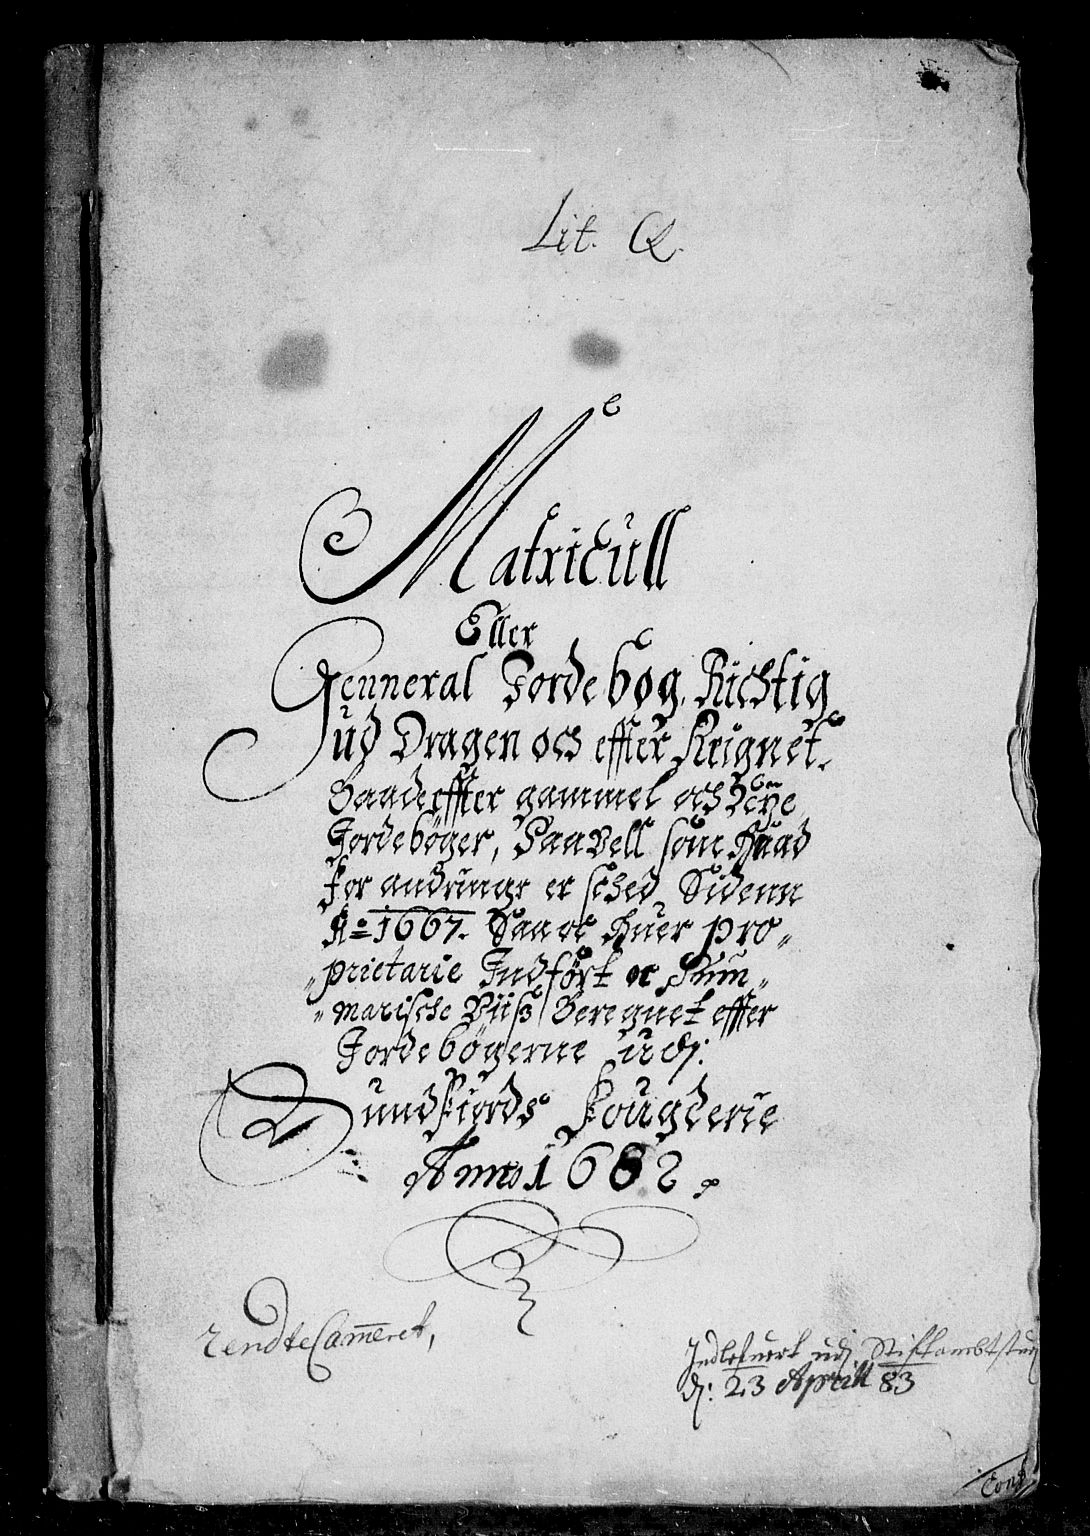 Lit. Q.
Matricull
Eller
Genneral Jordebog, Richtig
ud Dragen och effter Reignet.
Baade effter gammel och Nÿe
Jordebøger, Saavell som huad
for andringr er scheed Sidenn
Aº 1667. Saa oc huer pro„
„prietarie Indført oc Sum„
„marische Viiß Beregnet effter
Jordebøgerne udj:
Sundfiords Fougderie
Anno 1682.
RendteCammeret,
Indlefuert udj Stiftambtstuen
dj: 23 Aprill 83